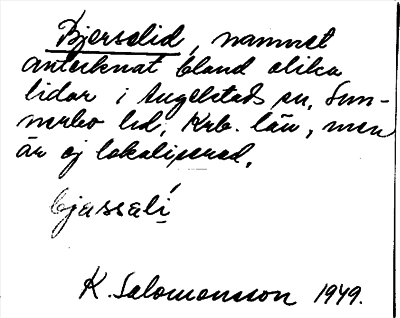 Bjerselid, namnet
antecknat bland olika
lidar i Angelstads sn, Sun-
nerbo hd, Krb. län, men
är ej lokaliserad.
bjæssəlí
K. Salomonsson 1949.